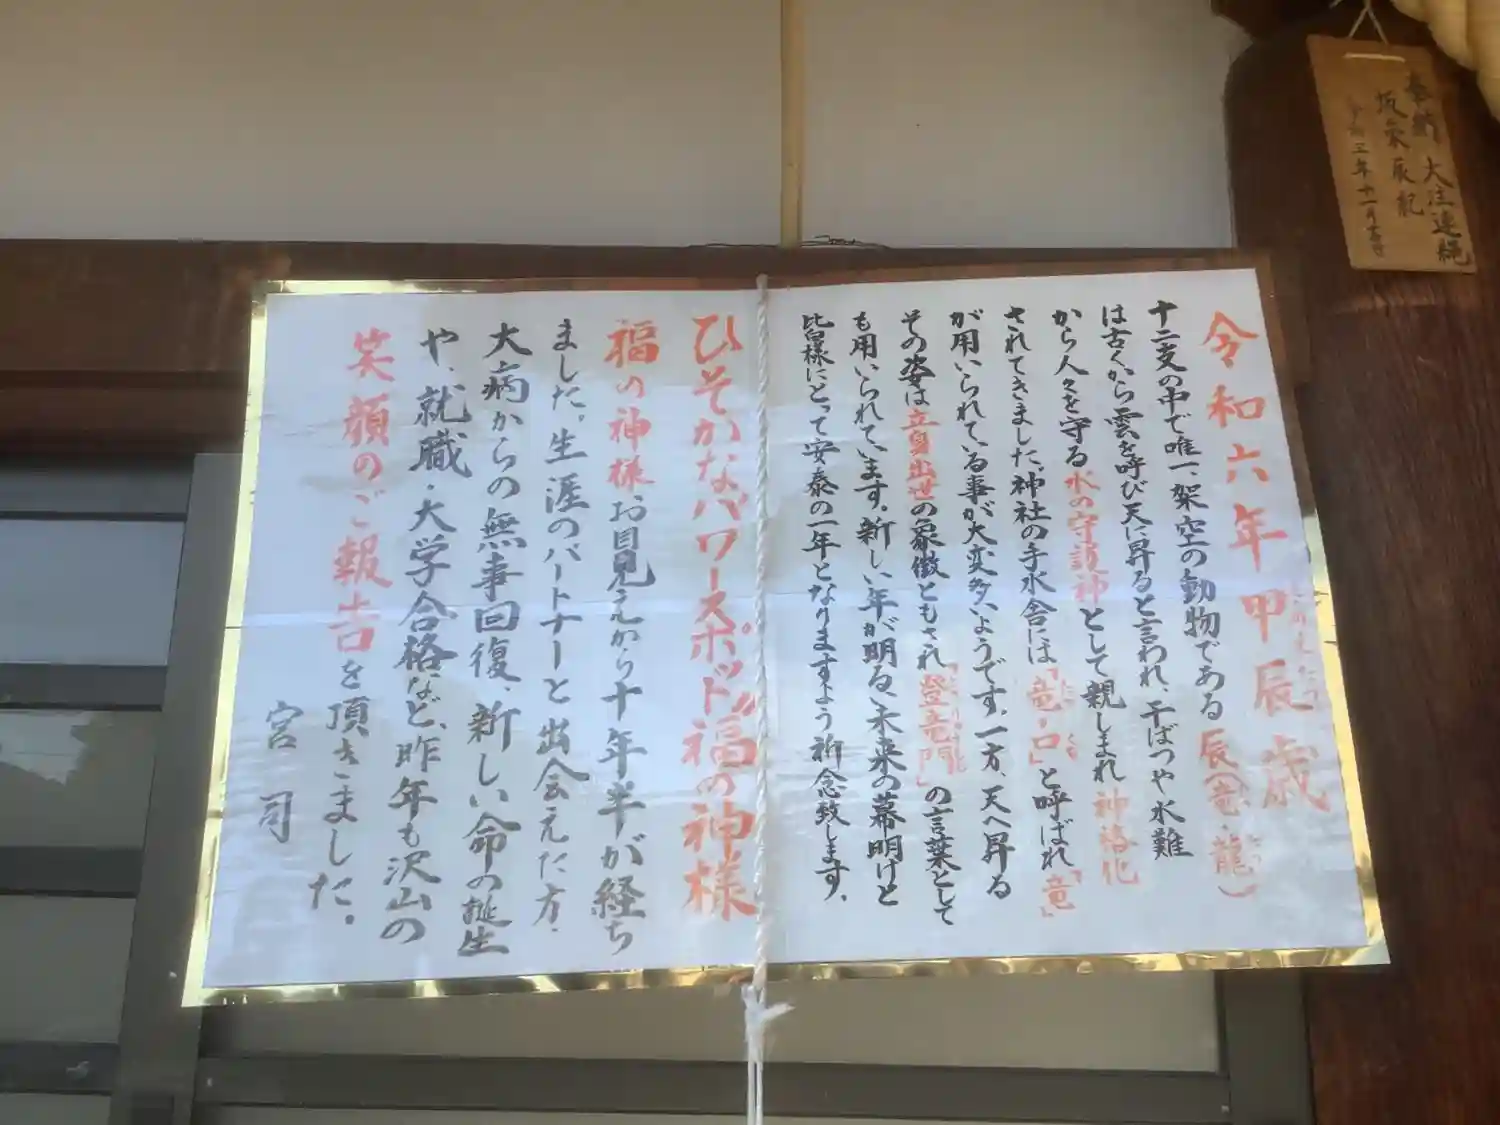 令和六年甲辰歳
十二支の中で唯一、架空の動物である辰(竜・龍)
は古くから雲を呼び天に昇ると言われ、干ばつや水難
から人々を守る水の守護神として親しまれ神格化
されてきました。神社の手水舎には「竜・口」と呼ばれ「竜」
が用いられている事が大変多いようです。一方、天へ昇る
その姿は立身出世の象徴ともされ「登竜門」の言葉として
も用いられています。新しい年が明るい未来の幕明けと
皆様にとって安泰の一年となりますよう祈念致します。
ひそかなパワースポット"福の神様
福の神様お目見えから十年半が経ち
ました。生涯のパートナーと出会えた方、
大病からの無事回復、新しい命の誕生
や、就職・大学合格など、昨年も沢山の
笑顔のご報告を頂きました。
宮司
奉納 大注連縄
令和三年十一月吉日